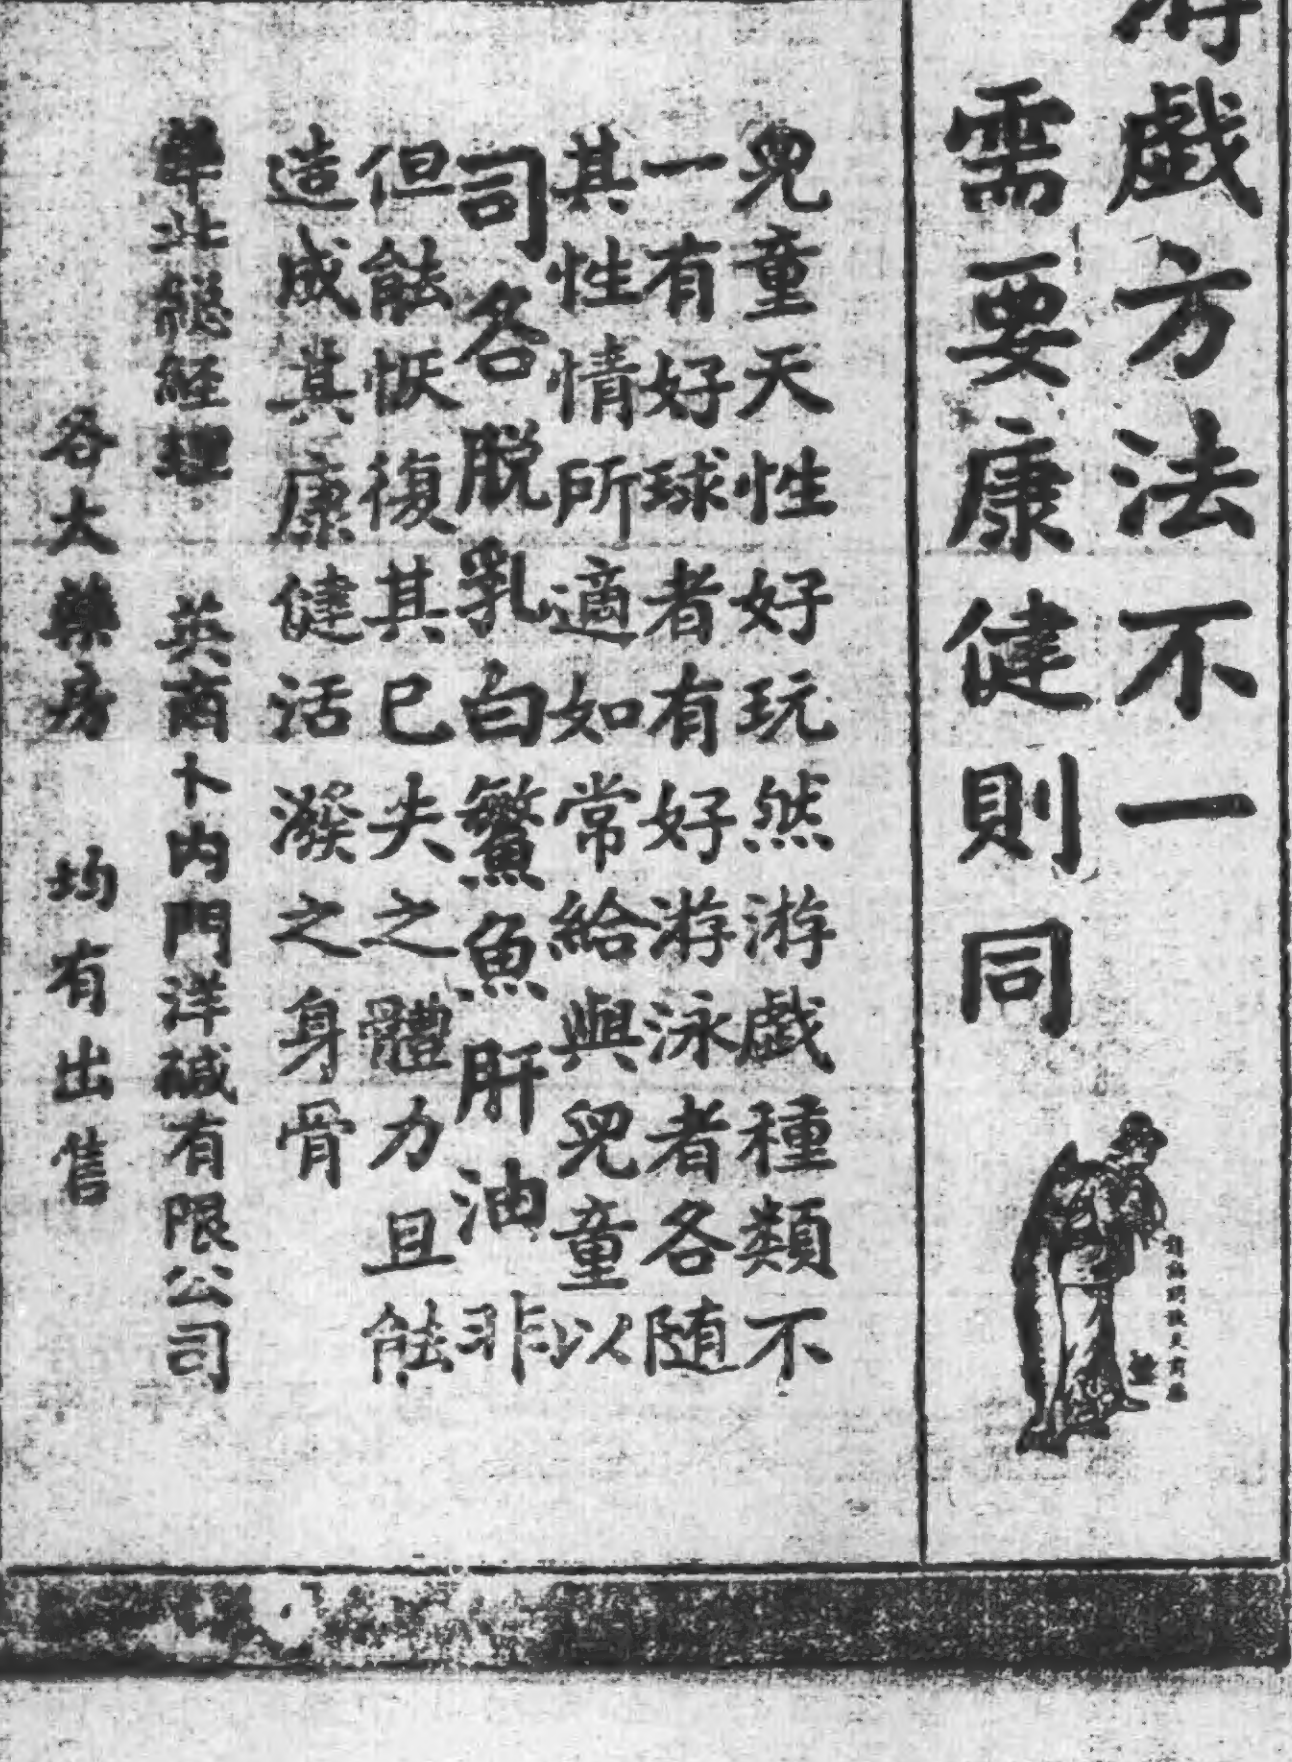 游戲方法不一
需要康健則同
兒童天性好玩然游戲種類不
一有好球者有好游泳者各随
其性情所適如常給與兒童以
司各脫乳白鰵魚肝油非
但能恢復其已失之體力且能
造成其康健活潑之身骨
華北總經理 英商卜內門洋碱有限公司
各大藥房 均有出售